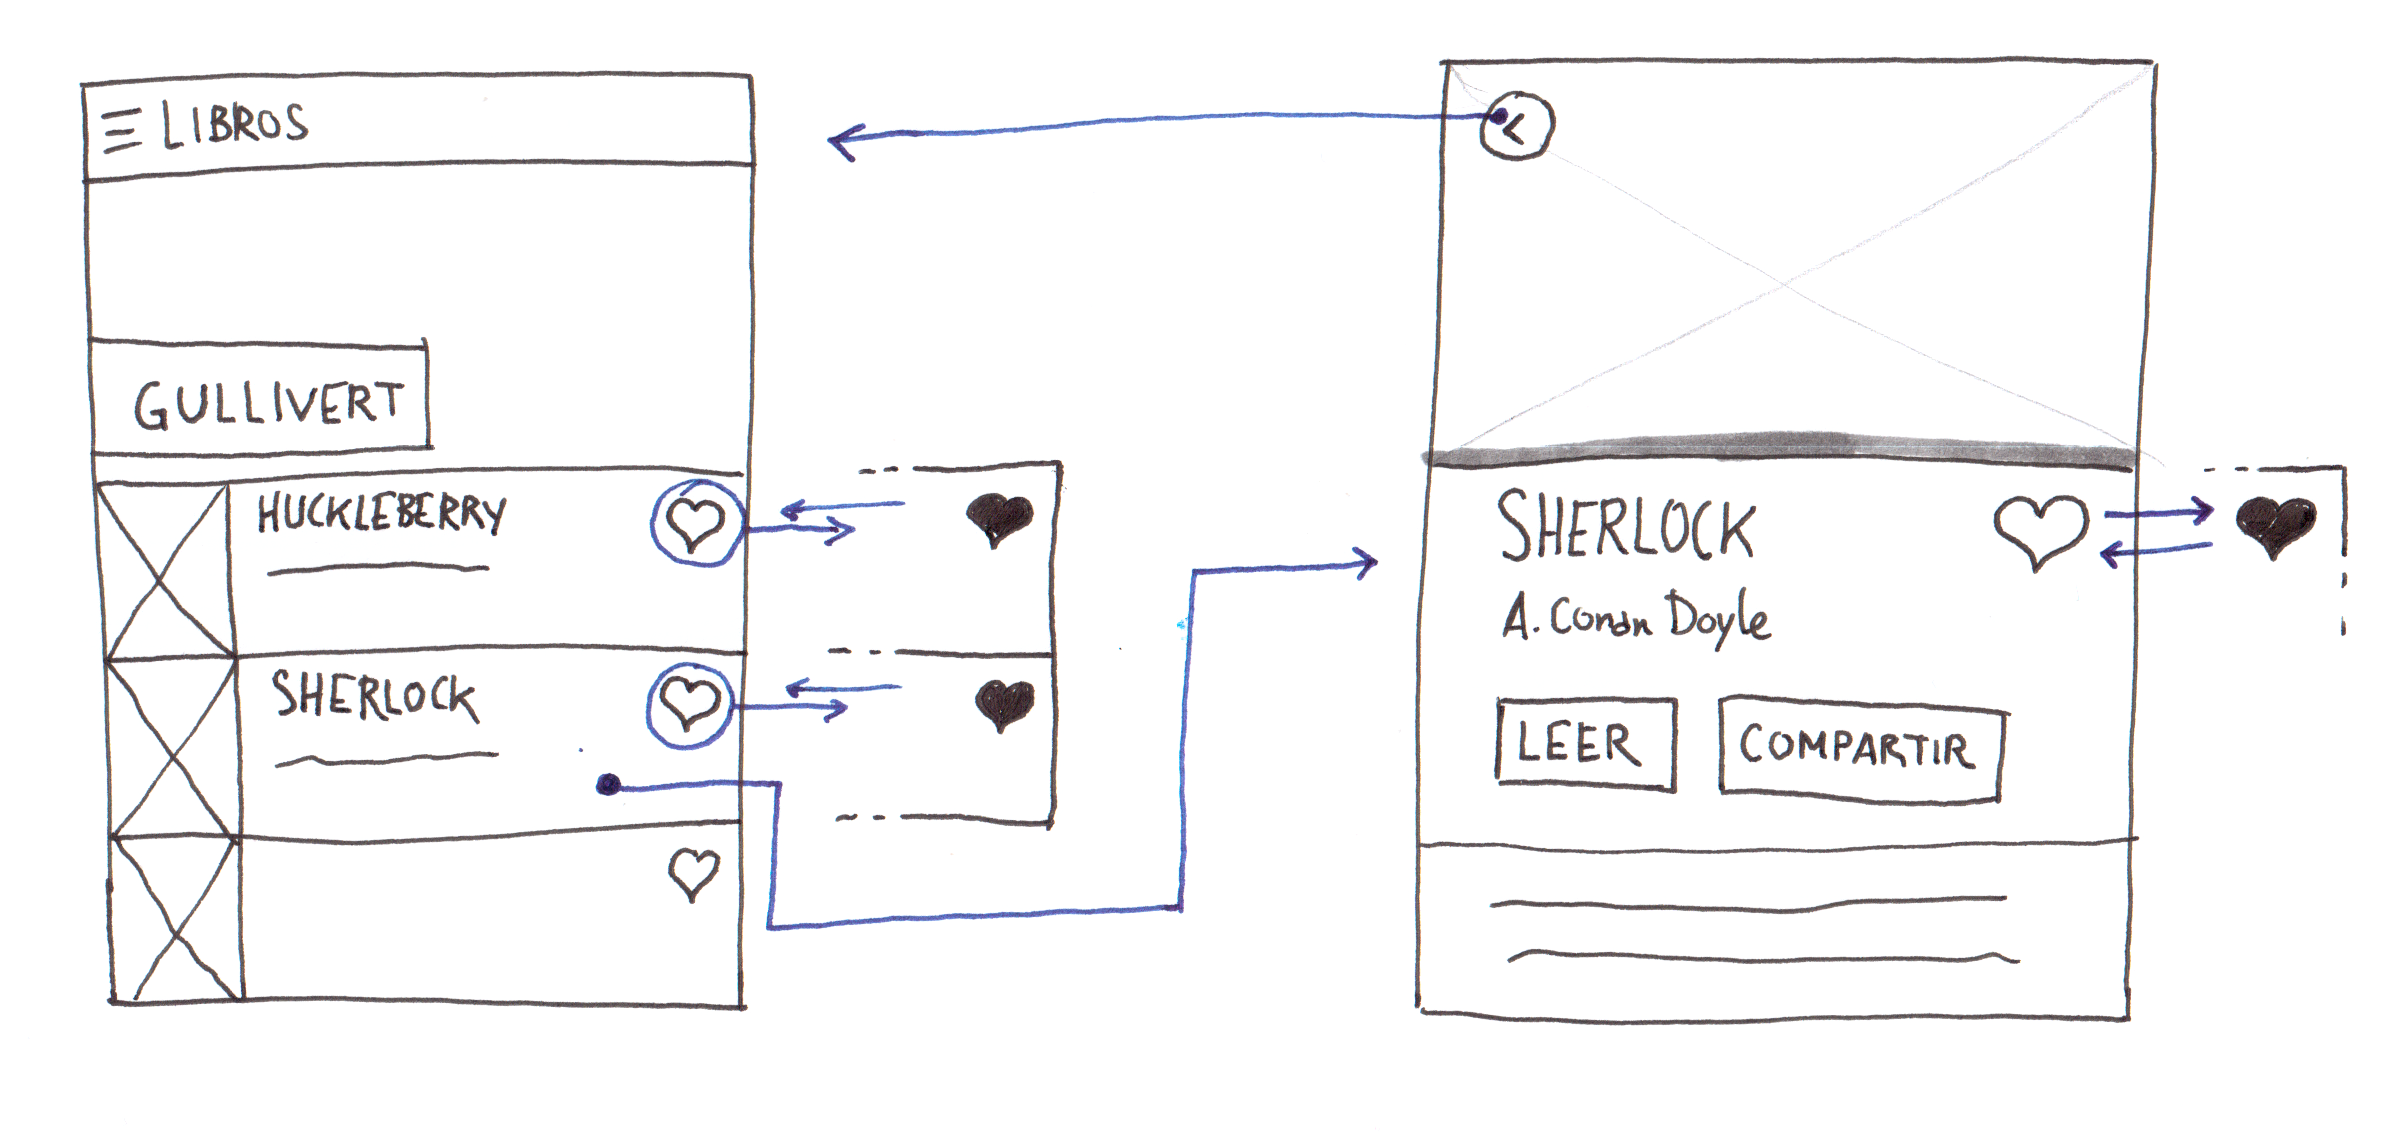 LIBROS
GULLIVERT
HUCKLEBERRY
SHERLOCK
SHERLOCK
A. Conan Doyle
LEER
COMPARTIR